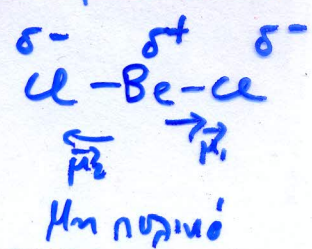 δ- δ+ δ-
Cl - Be - Cl
μ⃗₂ μ⃗₁
Μη πολικό